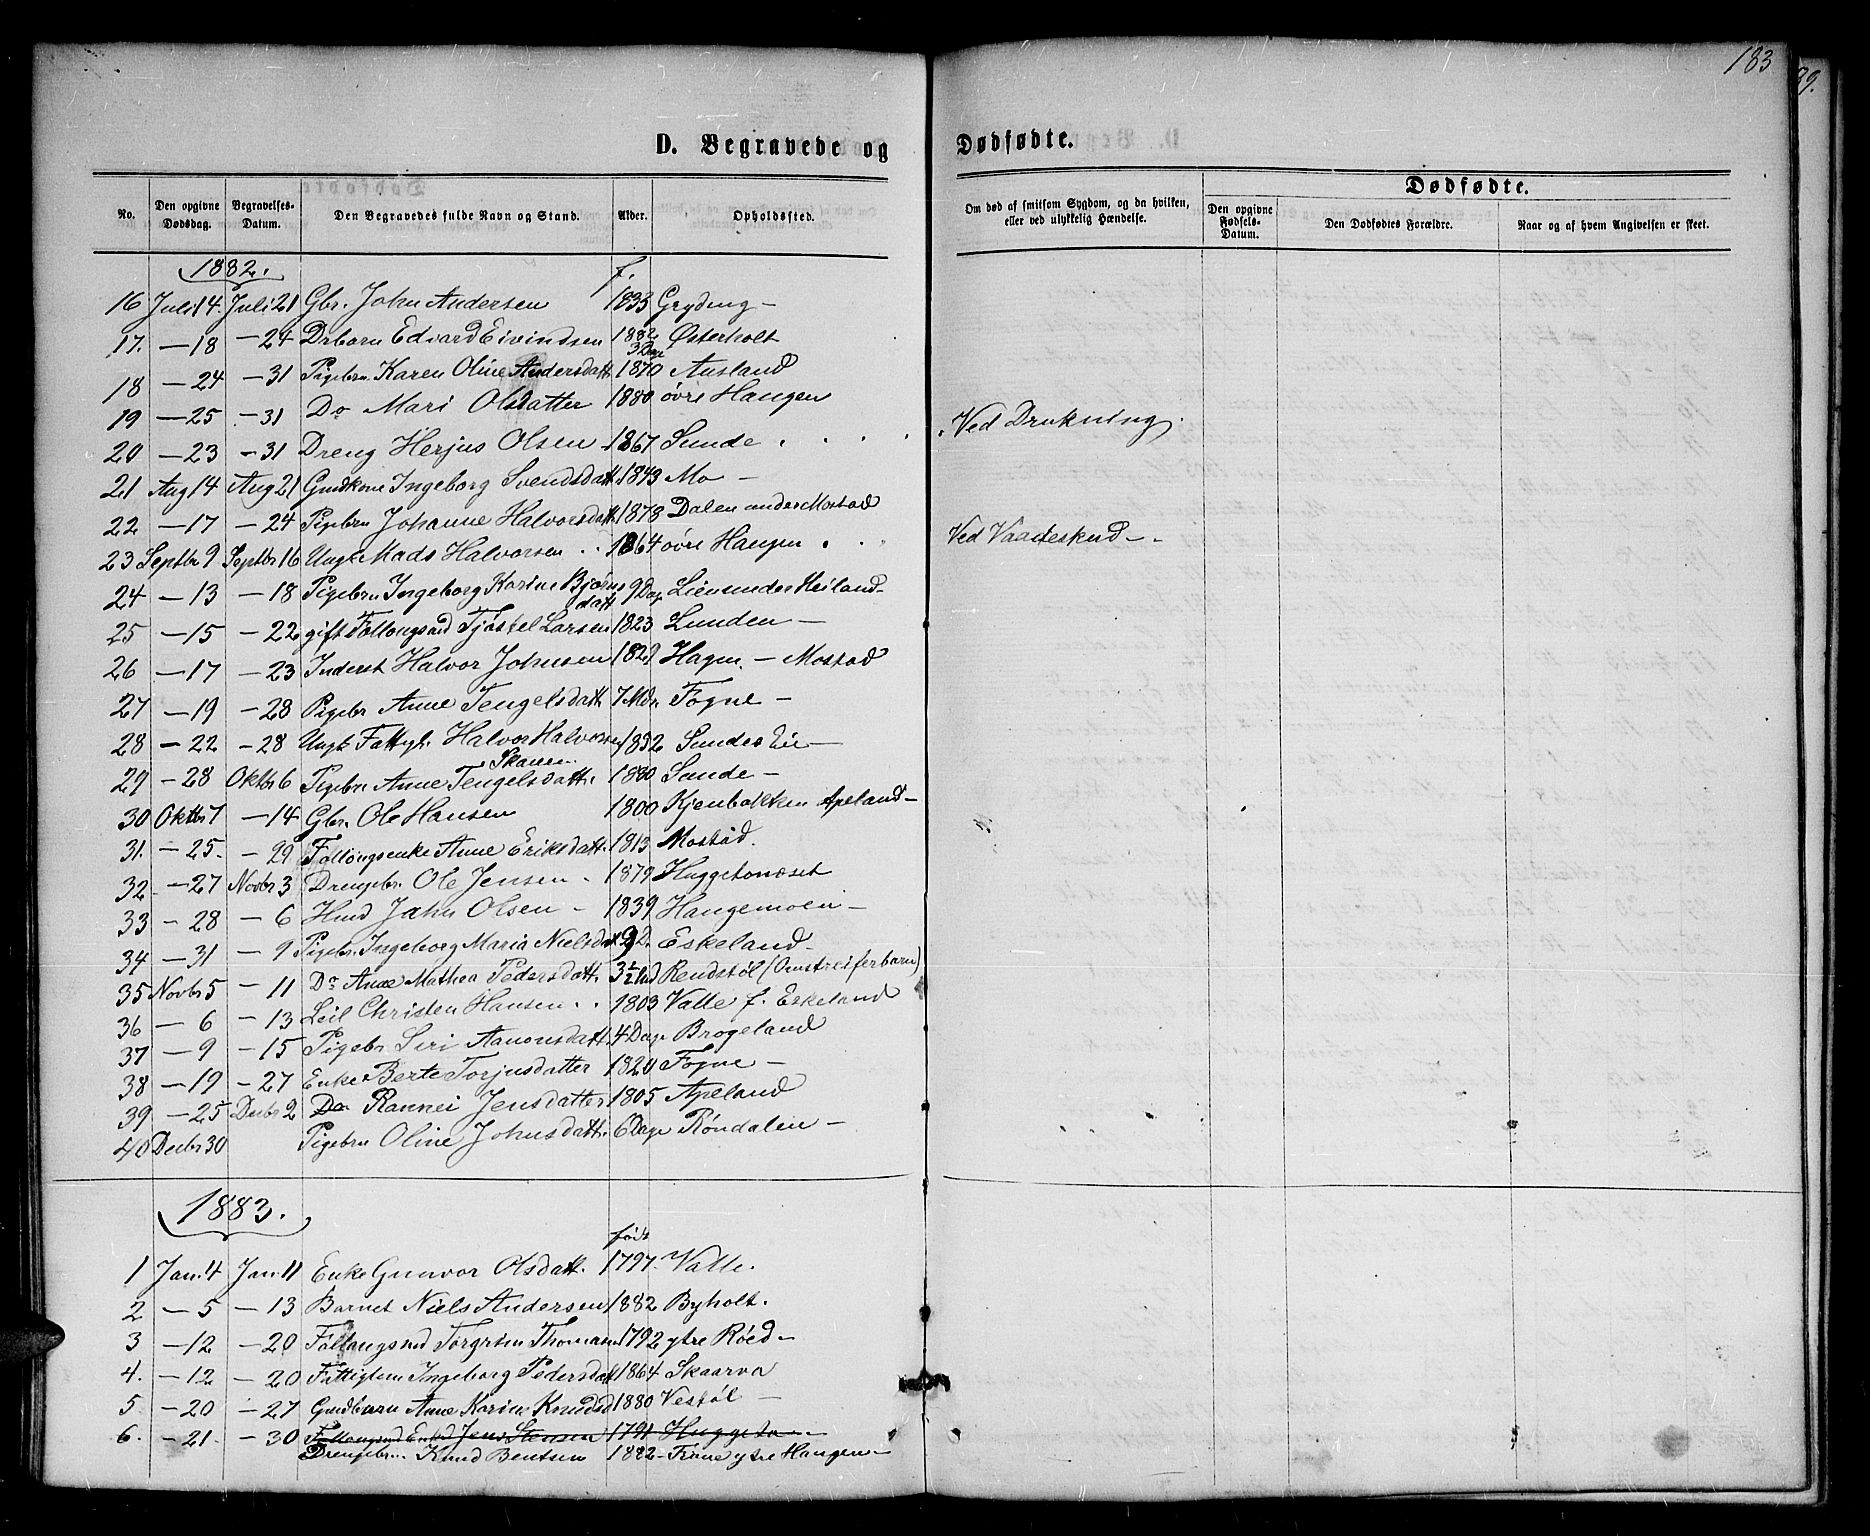 183
D. Begravede og Dødfødte.
No. Den opgivne Dødsdag. Begravelses-Datum. Den Begravedes fulde Navn og Stand. Alder. Opholdssted. Om død af smitsom Sygdom, og da hvilken, eller ved ulykkelig Hændelse. Dødfødte. Den opgivne Fødsels-Datum. Den Dødfødtes Forældre. Naar og af hvem Angivelsen er skeet.
1882. f.
16 Juli 14. Juli 21 Gbr. John Andersen 1833 Gryding -
17. - 18 - 24 Drbarn Edvard Eivindsen 1882 3 Dage Østerholt
18 - 24 - 31 Pigebrn Karen Oline Andersdatt. 1870 Ausland
19 - 25 - 31 Do Mari Olsdatter 1880 øvre Haugen
20 - 23 - 31 Dreng Herjus Olsen 1867 Sunde . . . . Ved Drukning.
21 Aug 14 Aug 21 Gmdkone Ingeborg Svendsdatt. 1843 Mo -
22 - 17 - 24 Pigebrn Johanne Halvorsdatt. 1878 Dalen under Mostad
23 Septbr 9 Septbr 16 Ungk Mads Halvorsen . . 1864 øvre Haugen . . Ved Vaadeskud - .
24 - 13 - 18 Pigebrn Ingeborg Karine Bjørnsdatt 9 Dag Lien under Heiland -
25 - 15 - 22 gift Føllougsmd Tjøstel Larsen 1823 Lunden -
26 - 17 - 23 Inderst Halvor Johnsen 1829 Hagen - Mostad
27 - 19 - 28 Pigebr Anne Tengelsdatt. 7 Mdr. Fogne -
28 - 22 - 28 Ungk. Fattigl. Halvor Halvorsen Skaaren 1832 Sundes Eie -
29 - 28 Oktbr 6 Pigebrn Anne Tengelsdatt. 1880 Sunde -
30 Oktbr 7 - 14 Gbr. Ole Hansen 1800 Apeland -
31. - 25. - 29 Føllougsenke Anne Eriksdatt. 1813 Mostad.
32 - 27 Novbr 3 Drengebr. Ole Jensen - 1879 Huggetonæset
33 - 28 - 6 Hmd John Olsen - 1839 Haugemoen -
34 - 31 - 9 Pigebr. Ingeborg Maria Nielsdat 9 D. Eskeland -
35 Novbr 5 - 11 Do Anne Mathea Pedersdatt. 3½ Md Rendstøl (Omstreiferbarn)
36 - 6 - 13 Leil Christen Hansen . . 1803 Valle f. Eskeland
37 - 9 - 15 Pigebr Siri Aanonsdatt. 4 Dage Brogeland
38 - 19 - 27 Enke Berte Torjusdatter 1820 Fogne -
39 - 25 Decbr 2 Do Rannei Jensdatter 1805 Apeland
40 Decbr 30 Pigebrn Oline Johnsdatt. 6 Dage Røndalen -
1883. født
1 Jan. 4 Jan. 11 Enke Gunvor Olsdatt. 1797. Valle.
2 - 5 - 13 Barnet Niels Andersen 1882 Byholt.
3 - 12 - 20 Føllaugsmd Torgrim Thomasen 1792 ytre Røed -
4. - 12 - 20 Fattiglem Ingeborg Pedersdatt 1864 Skaarva
5. - 20 - 27 Gmdbarn Anne Karine Knudsd 1880 Vestøl -
6. - 21. - 30 Føllaugsmd Enkd Jens Stensen 1791 Huggeto -
Drengebr. Knud Bentsen 1882 - Trane ytre Haugen -